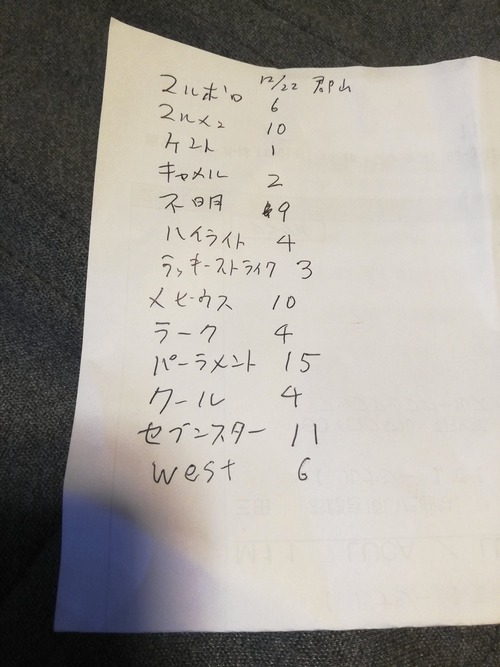 マルボロ 12/22 郡山
マルメン 6
ケント 10
キャメル 1
不明 2
ハイライト 9
ラッキーストライク 4
メビウス 3
ラーク 10
パーラメント 4
クール 15
セブンスター 4
west 11
6